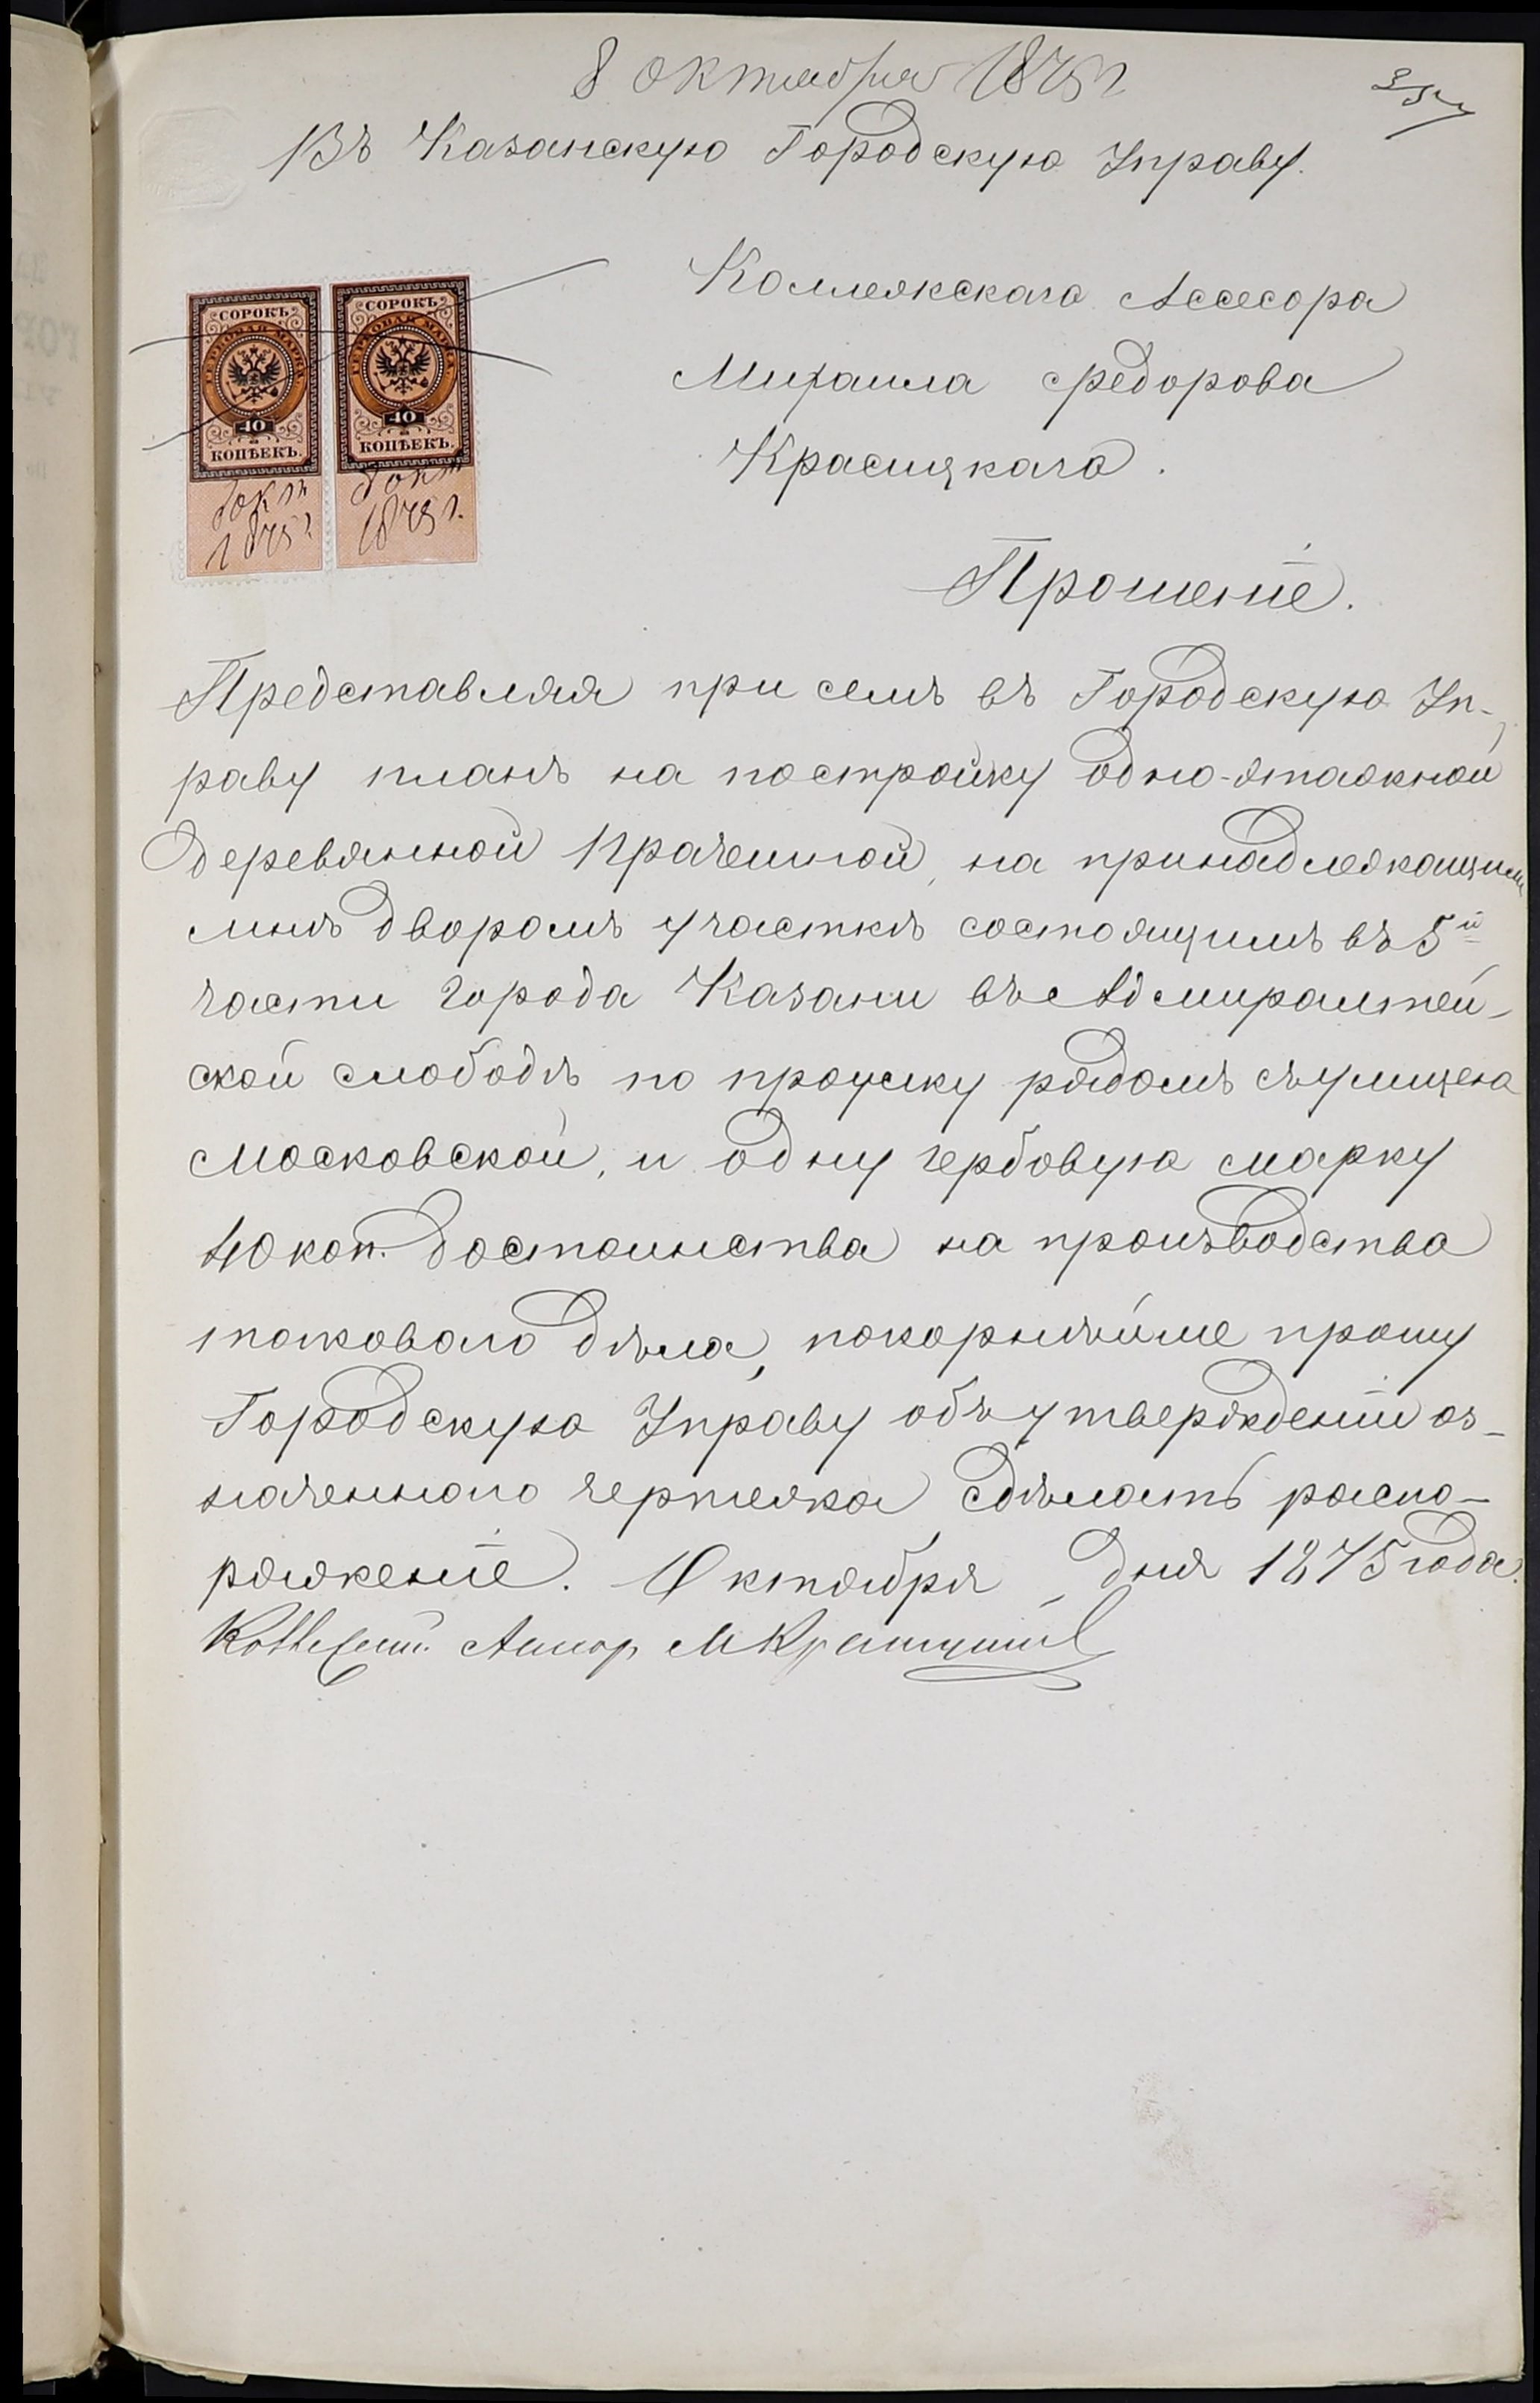 8 октября 1875 г
Въ Казанскую Городскую Управу.
Коллежскаго Ассесора
Михаила Федорова
Красицкаго.
СОРОКЪ СОРОКЪ
ГЕРБОВАЯ МАРКА ГЕРБОВАЯ МАРКА
40 40
КОПѢЕКЪ. КОПѢЕКЪ.
8 окт 8 окт
1875 г. 1875 г.
Прошеніе.
Представляя при семъ въ Городскую Уп-
раву планъ на постройку одно-этажной
деревянной прачешной, на принадлежащим
мнѣ дворомъ участкѣ состоящимъ въ 5й
части города Казани въ Адмиралтей-
ской слободѣ по проулку рядомъ съ улицею
Московской, и одну гербовую марку
40 коп. достоинства на производства
таковаго дѣла, покорнѣйше прошу
Городскую Управу объ утвержденіи оз-
наченнаго чертежа сдѣлать распо-
ряженіе. Октября дня 1875 года.
Коллежскій Ассесор М Красицкій